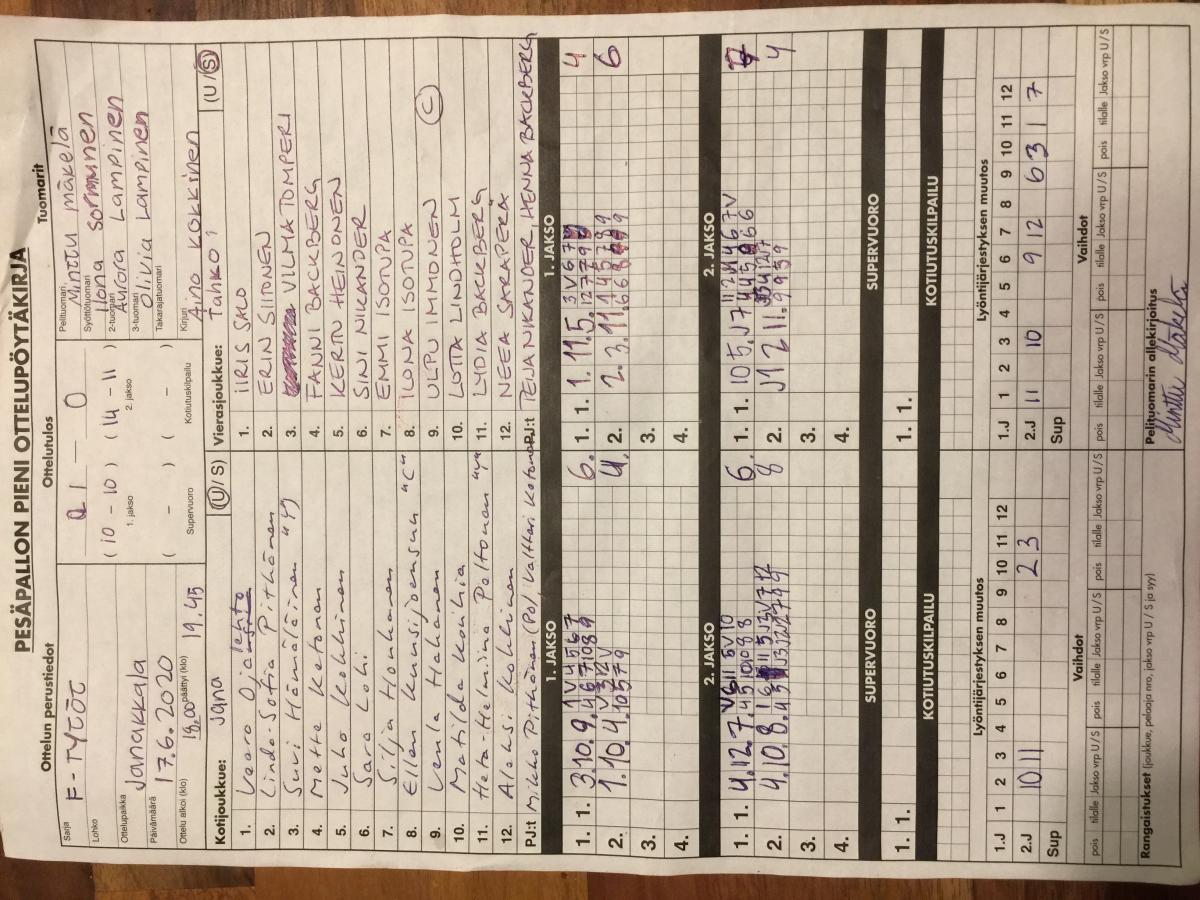 PESÄPALLON PIENI OTTELUPÖYTÄKIRJA
Ottelun perustiedot
Ottelutulos
Tuomarit
Sarja F-TYTÖT
Lohko
Ottelupaikka Janakkala
Päivämäärä 17.6.2020
Ottelu alkoi (klo) 18.00 päättyi (klo) 19.45
1 — 0
(10 - 10) (14 - 11)
1. jakso 2. jakso
( - ) ( - )
Supervuoro Kotiutuskilpailu
Pelituomari Minttu Mäkelä
Syöttötuomari Ilona Sormunen
2-tuomari Aurora Lampinen
3-tuomari Olivia Lampinen
Takarajatuomari
Kirjuri Aino Kokkinen
Kotijoukkue: Jana (U/S)
1. Veera Ojalehto
2. Linda-Sofia Pitkänen
3. Suvi Hämäläinen
4. Mette Ketonen
5. Juho Kokkinen
6. Sara Lohi
7. Silja Honkanen
8. Ellen Kuusijoensuu "C"
9. Venla Hakanen
10. Matilda Koskia
11. Heta-Helmiina Peltonen
12. Aleksi Kokkinen
PJ:t Mikko Pitkänen (PJ), Valtteri Ketonen
Vierasjoukkue: Tahko (U/S)
1. IIRIS SALO
2. ERIN SIITONEN
3. VILMA TOMPERI
4. FANNI BACKBERG
5. KERTTU HEINONEN
6. SINI NIKANDER
7. EMMI ISOTUPA
8. ILONA ISOTUPA
9. ULPU IMMONEN C
10. LOTTA LINDHOLM
11. LYDIA BACKBERG
12. NEEA SARAPERÄ
PJ:t TEIJA NIKANDER, HENNA BACKBERG
1. JAKSO
1. JAKSO
1. 1. 3. 10. 9. 6.
2. 1. 10. 4. 4.
3.
4.
1. 1. 1. 11. 5. 4
2. 2. 3. 11. 6
3.
4.
2. JAKSO
2. JAKSO
1. 1. 4. 12. 7. 6
2. 4. 10. 8. 8
3.
4.
1. 1. 10 5. 7
2. 1 2 11. 4
3.
4.
SUPERVUORO
SUPERVUORO
1. 1.
1. 1.
KOTIUTUSKILPAILU
KOTIUTUSKILPAILU
Lyöntijärjestyksen muutos
Lyöntijärjestyksen muutos
1.J 1 2 3 4 5 6 7 8 9 10 11 12
2.J 10 11 2 3
Sup
1.J 1 2 3 4 5 6 7 8 9 10 11 12
2.J 11 10 9 12 6 3 1 7
Sup
Vaihdot
Vaihdot
pois tilalle Jakso vrp U/S pois tilalle Jakso vrp U/S pois tilalle Jakso vrp U/S
pois tilalle Jakso vrp U/S pois tilalle Jakso vrp U/S pois tilalle Jakso vrp U/S
Rangaistukset (joukkue, pelaaja nro, jakso vrp U / S ja syy)
Pelituomarin allekirjoitus
Minttu Mäkelä